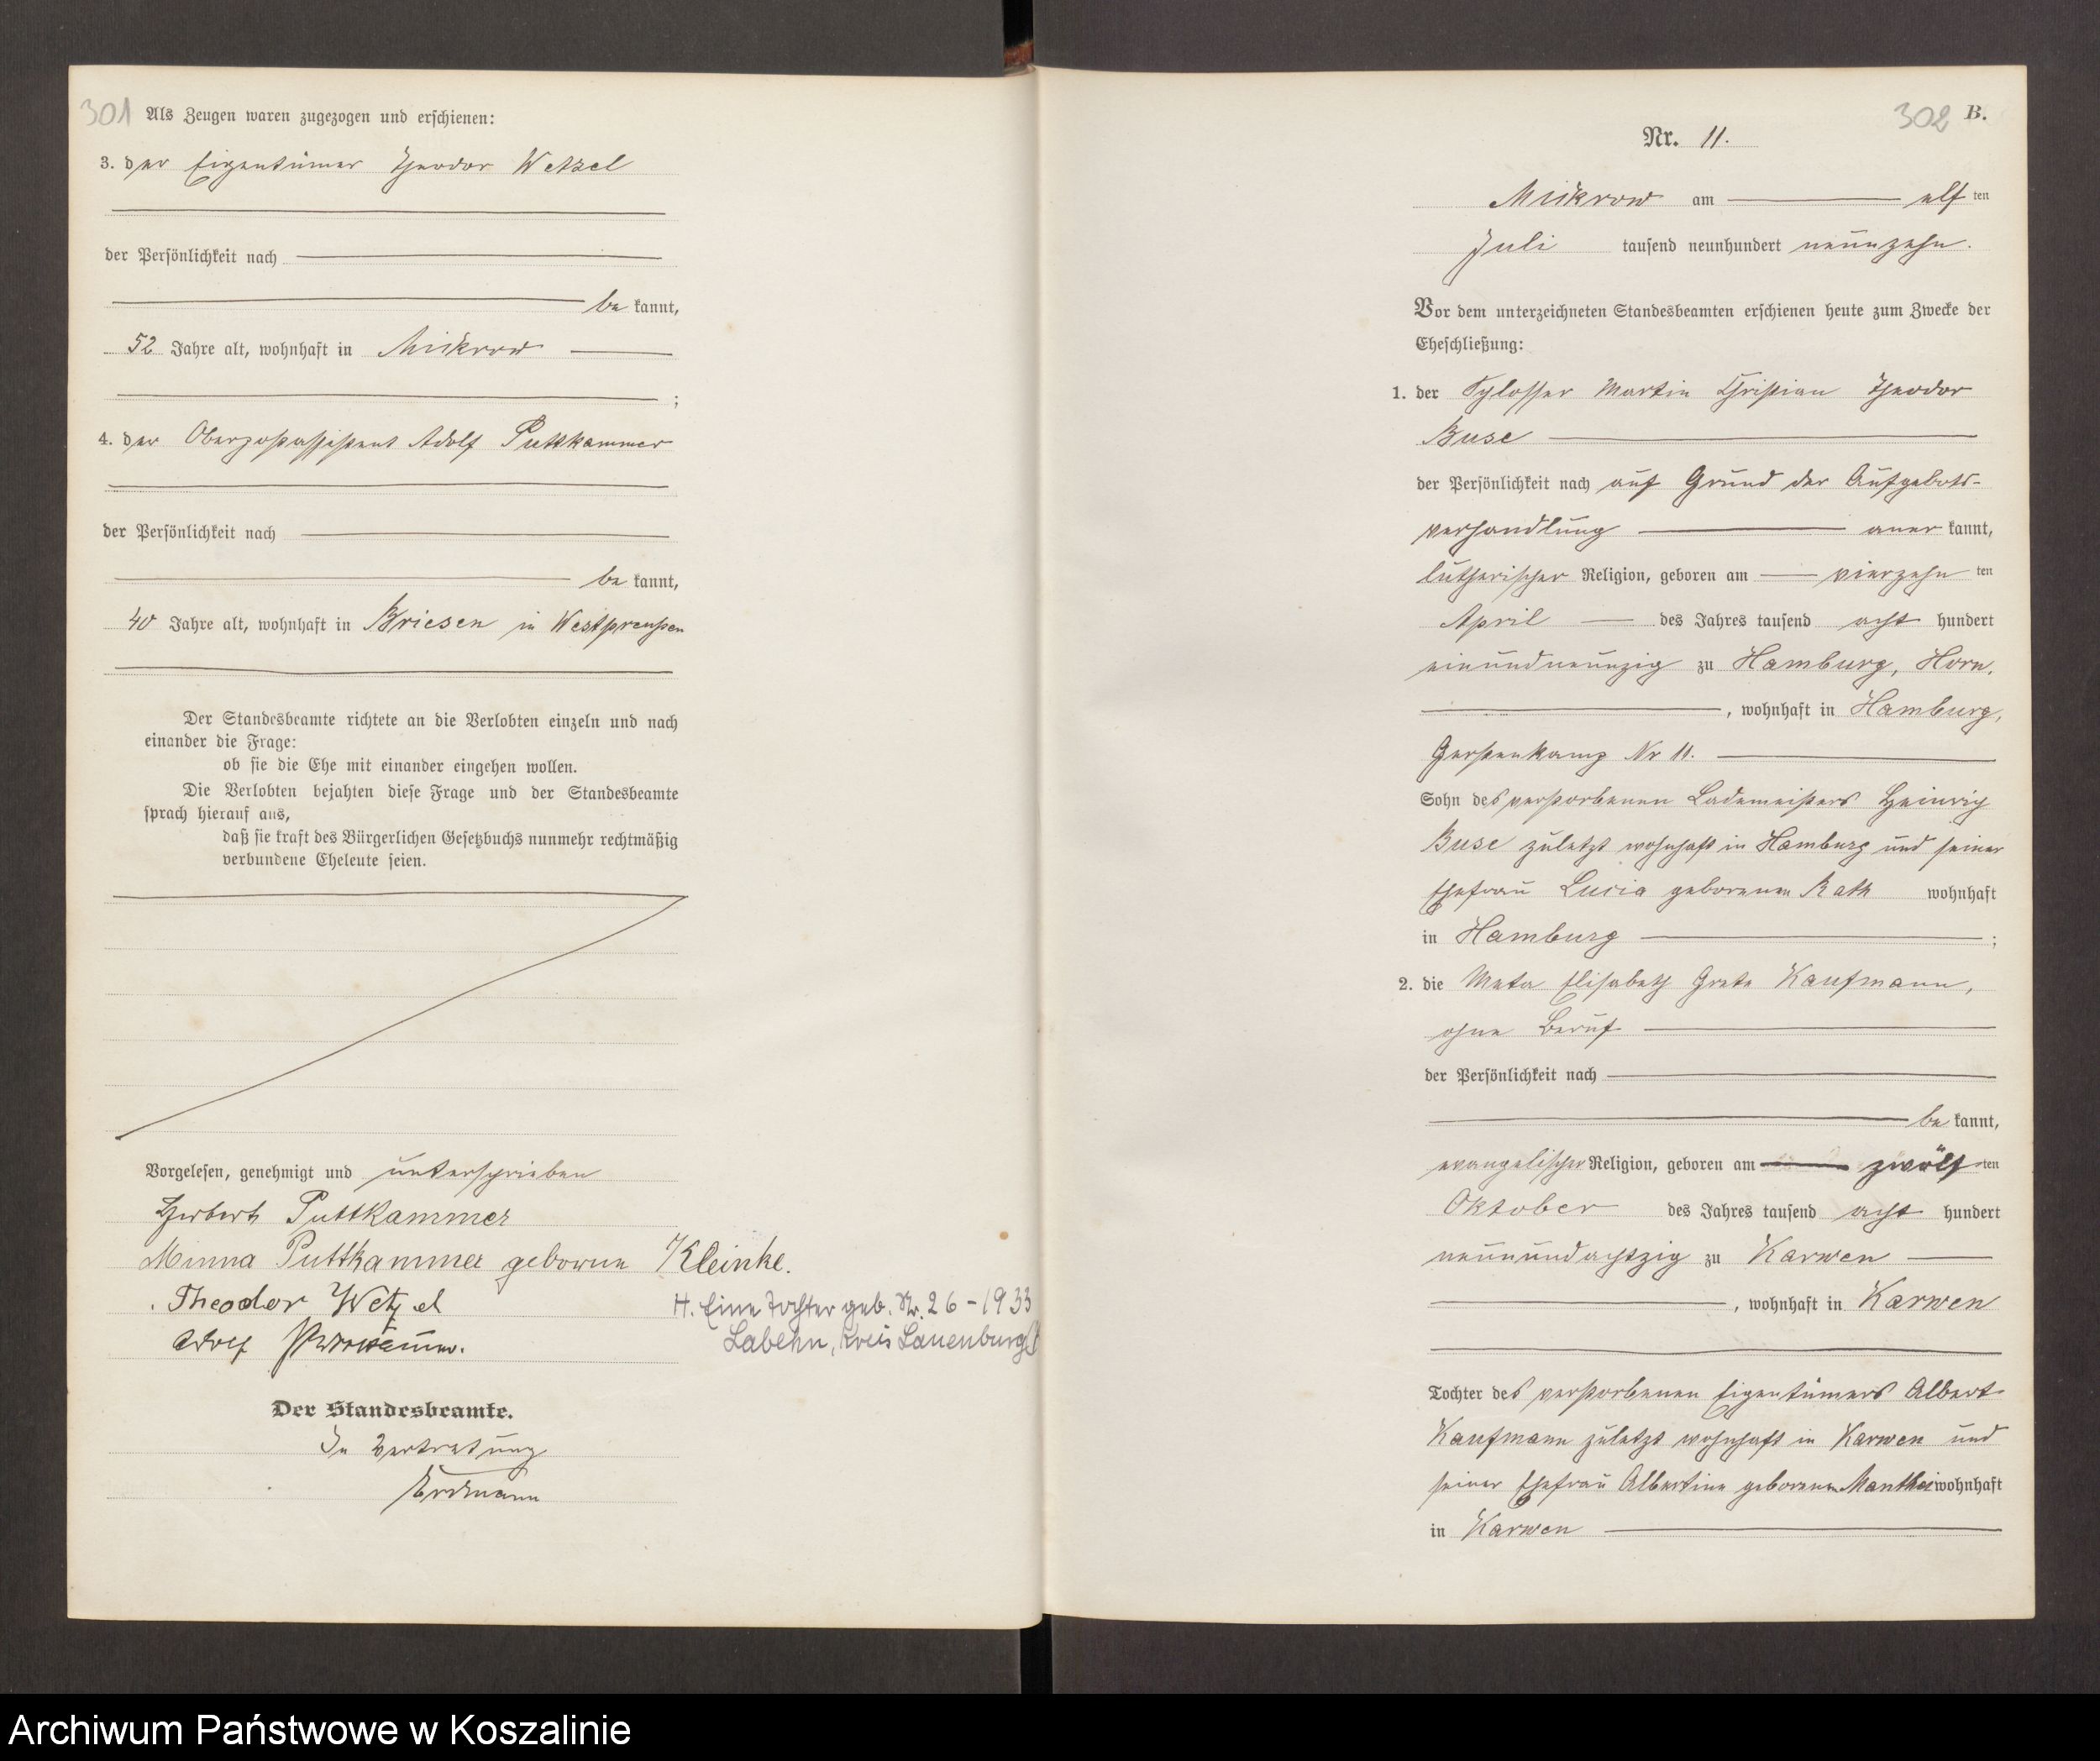 301 Als Zeugen waren zugezogen und erschienen:
3. der Eigentümer Theodor Wetzel
der Persönlichkeit nach
be kannt,
52 Jahre alt, wohnhaft in Mickrow
;
4. der Oberpostassistent Adolf Puttkammer
der Persönlichkeit nach
be kannt,
40 Jahre alt, wohnhaft in Briesen in Westpreußen
Der Standesbeamte richtete an die Verlobten einzeln und nach
einander die Frage:
ob sie die Ehe mit einander eingehen wollen.
Die Verlobten bejahten diese Frage und der Standesbeamte
sprach hierauf aus,
daß sie kraft des Bürgerlichen Gesetzbuchs nunmehr rechtmäßig
verbundene Eheleute seien.
Vorgelesen, genehmigt und unterschrieben
Herbert Puttkammer
Minna Puttkammer geborene Kleinke.
Theodor Wetzel
Adolf Puttkammer.
H. Eine Tochter geb. Nr. 26-1933
Labehn, Kreis Lauenburg
Der Standesbeamte.
In Vertretung
Erdmann
302 B.
Nr. 11.
Mickrow am elf ten
Juli tausend neunhundert neunzehn.
Vor dem unterzeichneten Standesbeamten erschienen heute zum Zwecke der
Eheschließung:
1. der Schlosser Martin Christian Theodor
Buse
der Persönlichkeit nach auf Grund der Aufgebots-
verhandlung aner kannt,
lutherischer Religion, geboren am vierzehn ten
April des Jahres tausend acht hundert
einundneunzig zu Hamburg, Horn,
, wohnhaft in Hamburg,
Gerstenkamp Nr 11.
Sohn des verstorbenen Lademeisters Heinrich
Buse zuletzt wohnhaft in Hamburg und seiner
Ehefrau Lucia geborenen Rath wohnhaft
in Hamburg ;
2. die Meta Elisabeth Grete Kaufmann,
ohne Beruf
der Persönlichkeit nach
be kannt,
evangelischer Religion, geboren am zwölf ten
Oktober des Jahres tausend acht hundert
neunundachtzig zu Karwen
, wohnhaft in Karwen
Tochter des verstorbenen Eigentümers Albert
Kaufmann zuletzt wohnhaft in Karwen und
seiner Ehefrau Albertine geborenen Manthei wohnhaft
in Karwen
Archiwum Państwowe w Koszalinie